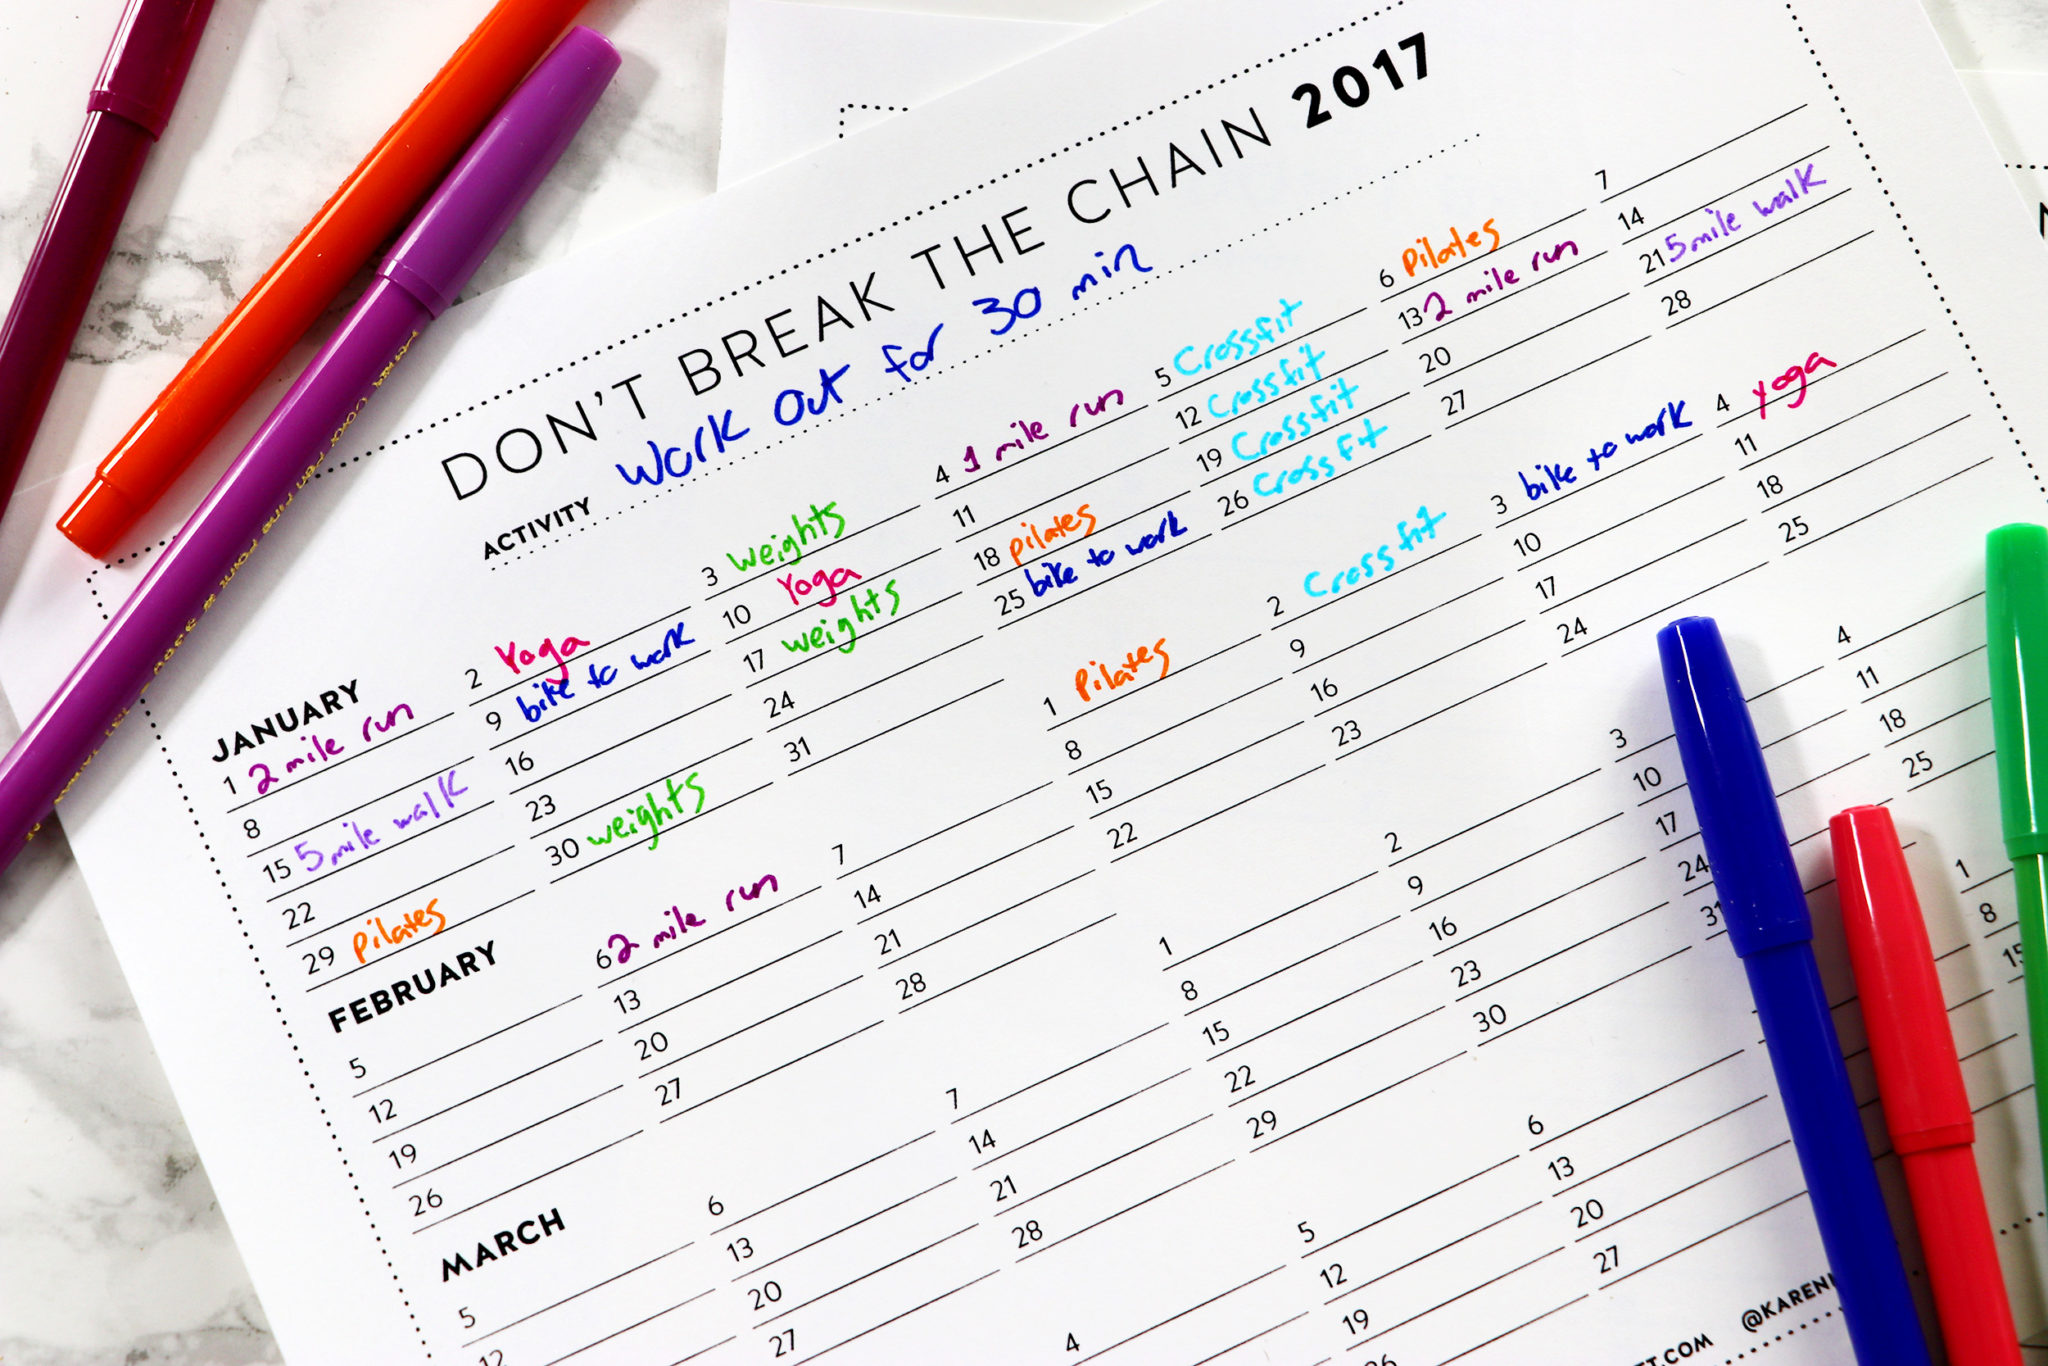 DON'T BREAK THE CHAIN 2017
ACTIVITY Work out for 30 min
JANUARY
1 2 mile run 2 Yoga 3 weights 4 1 mile run 5 Crossfit 6 Pilates 7
8 9 bike to work 10 Yoga 11 12 Crossfit 13 2 mile run 14
15 5 mile walk 16 17 weights 18 pilates 19 Crossfit 20 21 5 mile walk
22 23 24 25 bike to work 26 Crossfit 27 28
29 Pilates 30 weights 31
FEBRUARY
1 Pilates 2 Crossfit 3 bike to work 4 Yoga
5 6 2 mile run 7 8 9 10 11
12 13 14 15 16 17 18
19 20 21 22 23 24 25
26 27 28
MARCH
1 2 3 4
5 6 7 8 9 10 11
12 13 14 15 16 17 18
20 21 22 23 24 25
27 28 29 30 31
1
4 5 6 8
12 13 15
19 20
26 27
.COM @KAREN